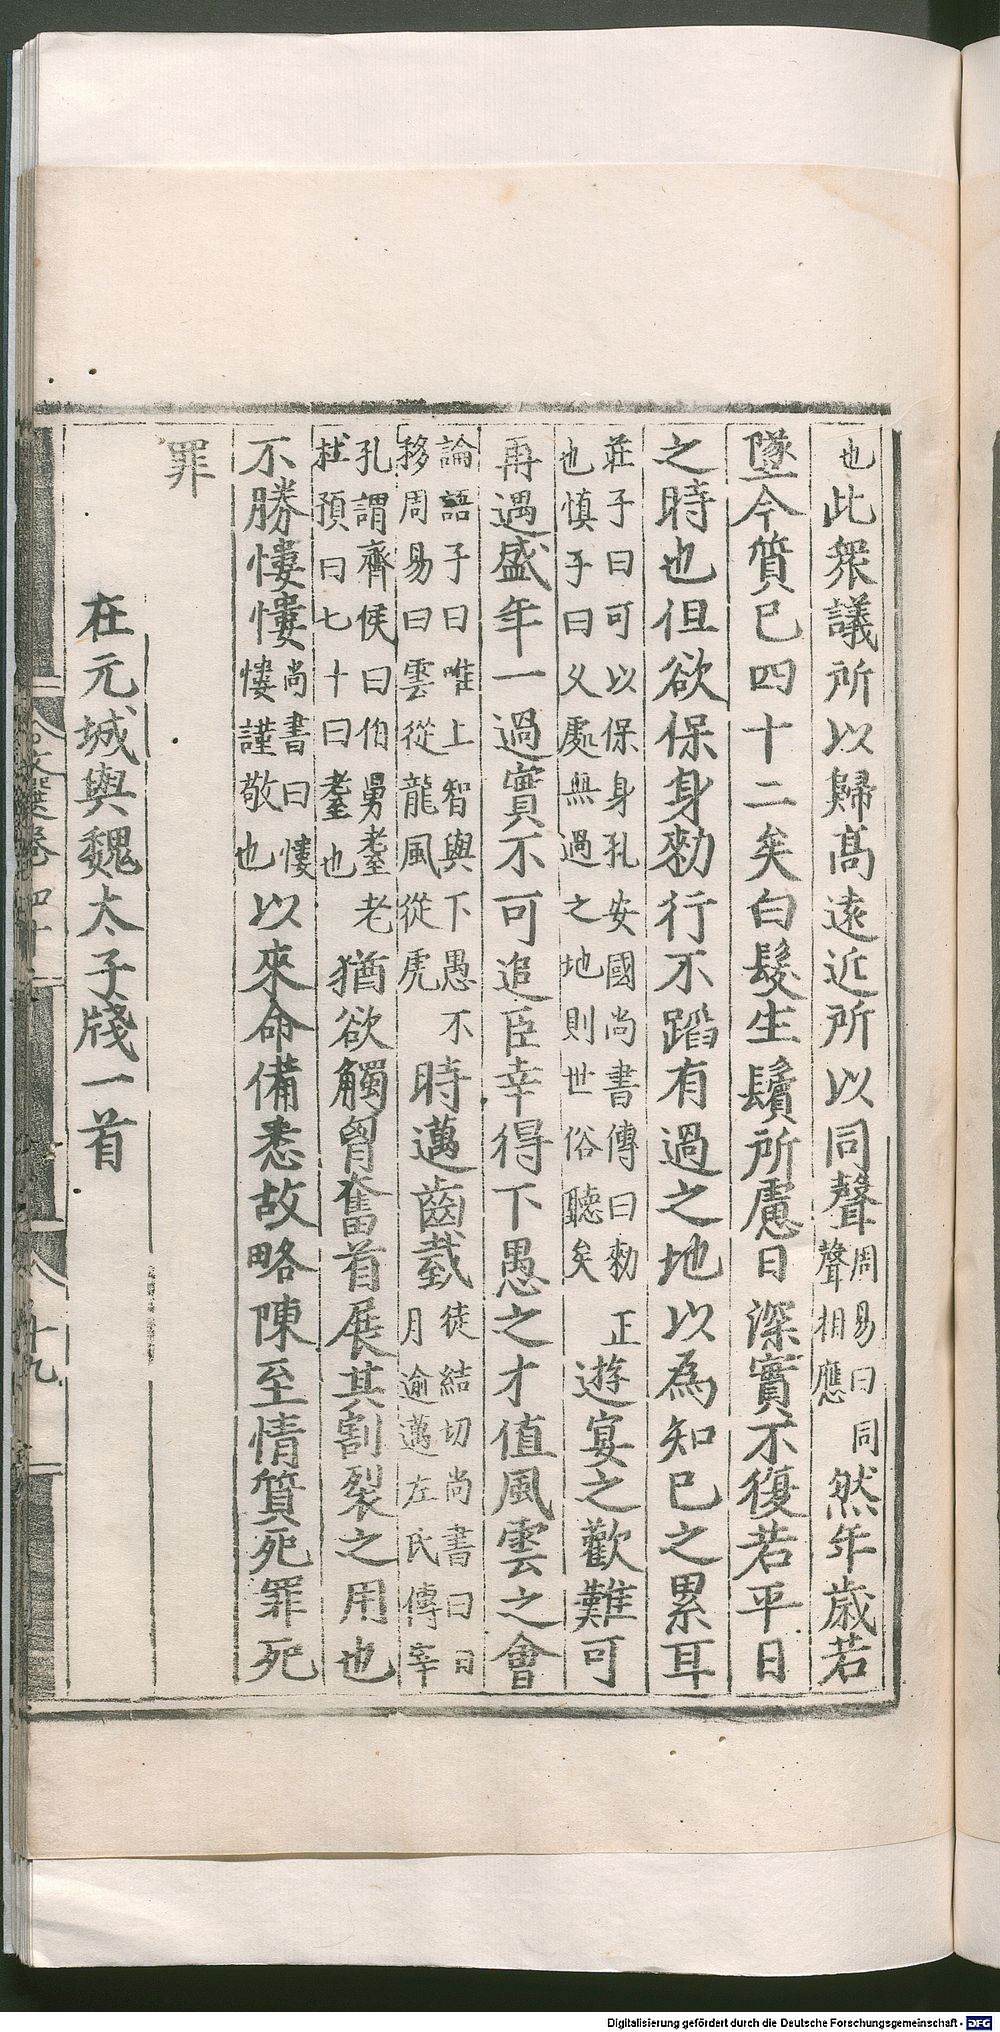 也此衆議所以歸髙遠近所以同聲周易曰同聲相應然年歲若
墜今質已四十二矣白髮生鬢所慮日深實不復若平日
之時也但欲保身勑行不蹈有過之地以為知已之累耳
莊子曰可以保身孔安國尚書傳曰勑正也慎子曰乆處無過之地則世俗聽矣遊宴之歡難可
再遇盛年一過實不可追臣幸得下愚之才值風雲之會
論語子曰唯上智與下愚不移周易曰雲從龍風從虎時邁齒臷徒結切尚書曰日月逾邁左氏傳宰
孔謂齊侯曰伯舅耋老杜預曰七十曰耋也猶欲觸匈奮首展其割裂之用也
不勝慺慺尚書曰慺慺謹敬也以來命備悉故略陳至情質死罪死
罪
在元城與魏太子牋一首
文選卷四十
十九
Digitalisierung gefördert durch die Deutsche Forschungsgemeinschaft - DFG